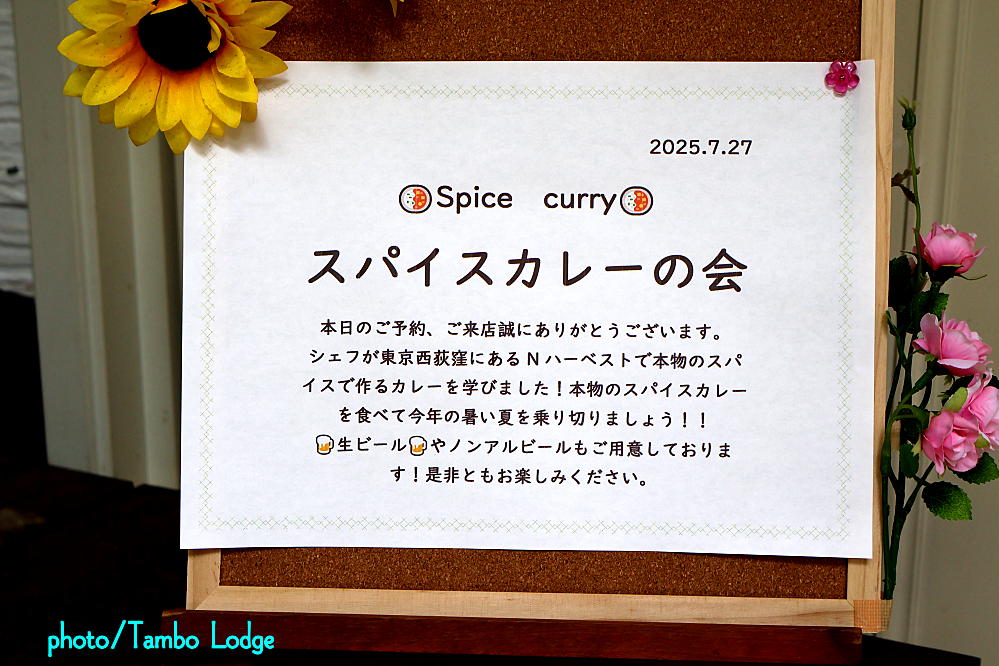 2025.7.27
🍛Spice curry🍛
スパイスカレーの会
本日のご予約、ご来店誠にありがとうございます。
シェフが東京西荻窪にあるNハーベストで本物のスパ
イスで作るカレーを学びました！本物のスパイスカレー
を食べて今年の暑い夏を乗り切りましょう！！
🍺生ビール🍺やノンアルビールもご用意しておりま
す！是非ともお楽しみください。
photo/Tambo Lodge